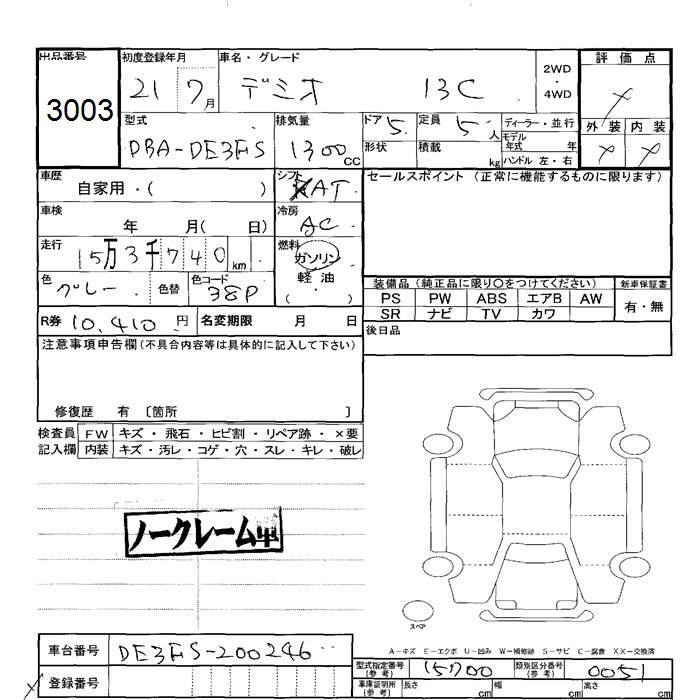 出品番号 初度登録年月 車名・グレード 2WD ・ 4WD 評価点
3003 21 7月 デミオ 13C
型式 排気量 ドア 5 定員 5人 ディーラー・並行 外装 内装
DBA-DE3FS 1300cc 形状 積載 kg モデル年式 年
ハンドル 左・右
車歴 自家用・( ) シフト AT セールスポイント (正常に機能するものに限ります)
車検 年 月( 日) 冷房 AC
走行 15万3千740km 燃料 ガソリン 軽油 ( ・ )
色 グレー 色替 色コード 38P
装備品 (純正品に限り○をつけてください) 新車保証書
PS PW ABS エアB AW 有・無
SR ナビ TV カワ
R券 10,410円 名変期限 月 日 後日品
注意事項申告欄(不具合内容等は具体的に記入して下さい)
修復歴 有 〔箇所 〕
検査員 FW キズ・飛石・ヒビ割・リペア跡・×要
記入欄 内装 キズ・汚レ・コゲ・穴・スレ・キレ・破レ
ノークレーム車
スペア
A-キズ E-エクボ U-凹み W-補修跡 S-サビ C-腐食 XX-交換済
車台番号 DE3FS-200246
型式指定番号(参考) 15700 類別区分番号(参考) 0051
登録番号 車庫証明用(参考) 長さ cm 幅 cm 高さ cm